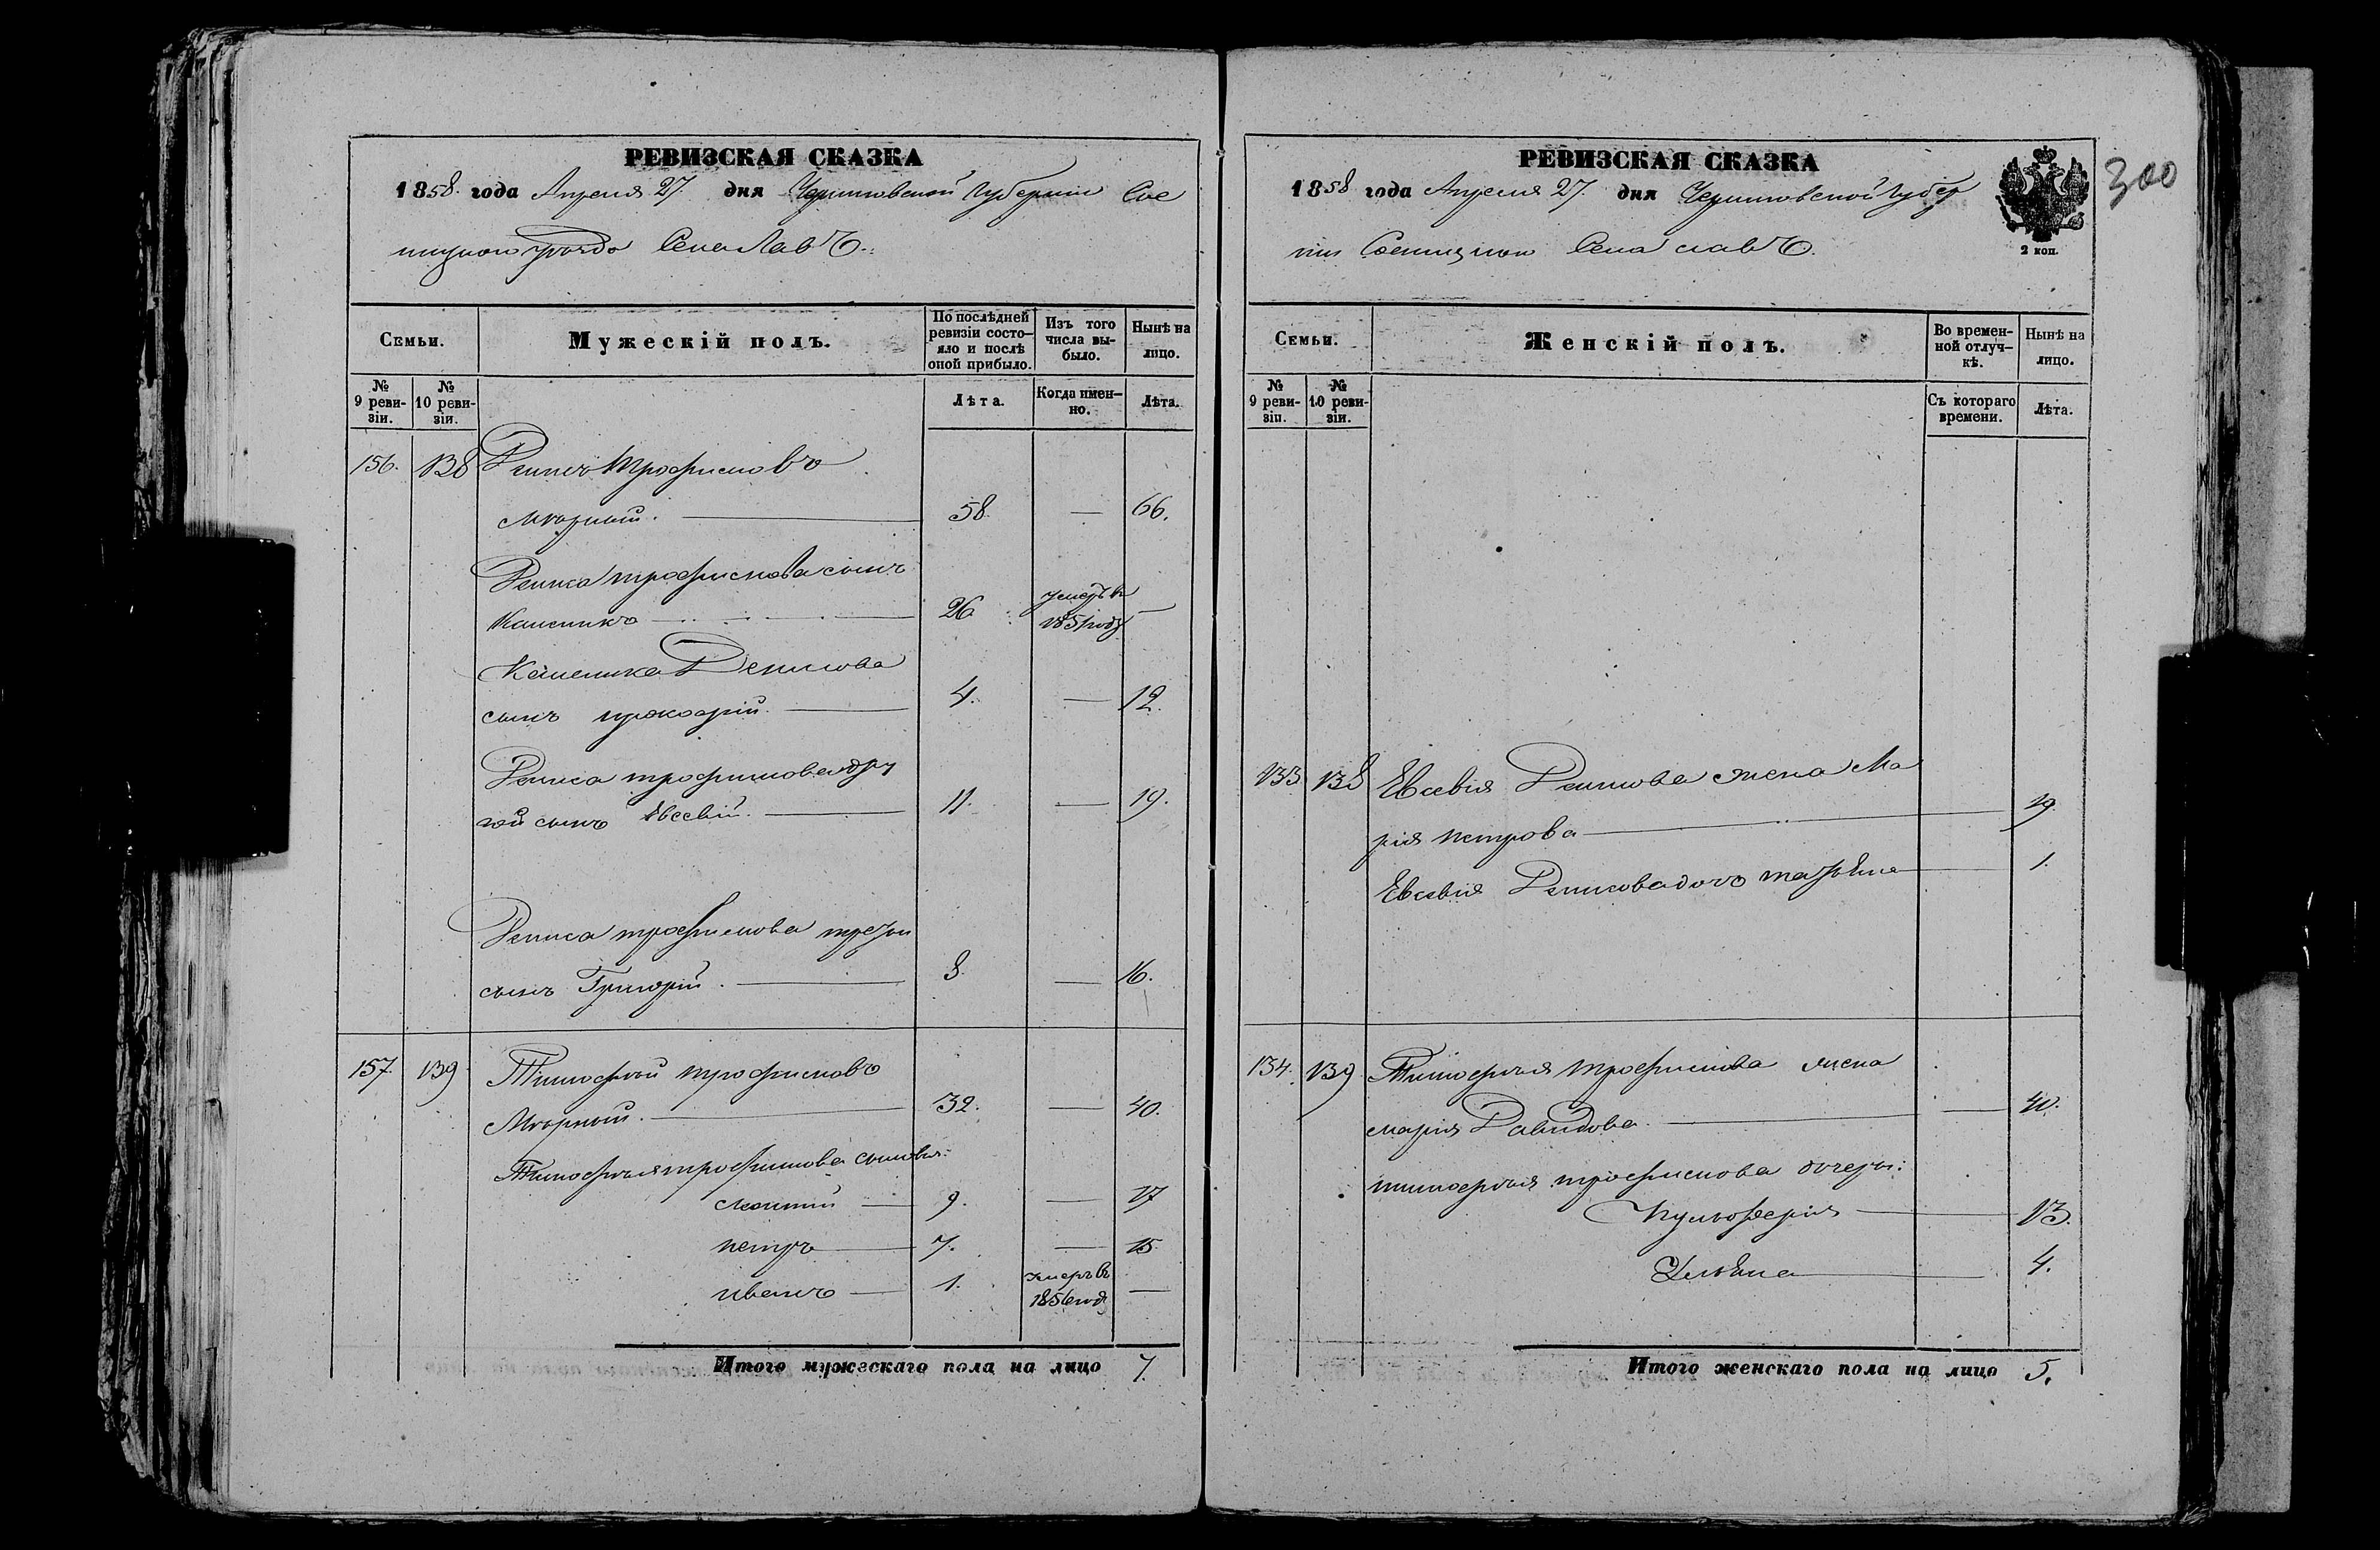 РЕВИЗСКАЯ СКАЗКА
1858 года Апреля 27 дня Черниговской Губернии Сос
ницкого уезда Села Лавъ.
Семьи.
Мужескій полъ.
По послѣдней ревизіи состо-
яло и послѣ оной прибыло.
Изъ того числа вы-
было.
Нынѣ на лицо.
№ 9 реви-
зіи.
№ 10 реви-
зіи.
Лѣта.
Когда имен-
но.
Лѣта.
156. 138 Денисъ Трофимовъ
58 — 66.
Дениса трофимова сынъ
Каленикъ — 26 умеръ въ 1851 году —
Каленика Денисова
сынъ прокофій. — 4. — 12.
Дениса трофимова дру
гой сынъ Евсевій. — 11. — 19.
Дениса трофимова третій
сынъ Григорій. — 8. — 16.
157. 139 Тимофей трофимовъ
32. — 40.
Тимофея трофимова сыновья:
леонтий — 9. — 17
петръ — 7. — 15.
иванъ — 1. умеръ въ 1856 году —
Итого мужескаго пола на лицо 7.
РЕВИЗСКАЯ СКАЗКА
1858 года Апреля 27. дня Черниговской Губер
нии Сосницкого Села Лавъ.
2 коп.
300
Семьи.
Женскій полъ.
Во времен-
ной отлуч-
кѣ.
Нынѣ на лицо.
№ 9 реви-
зіи.
№ 10 реви-
зіи.
Съ котораго времени.
Лѣта.
133 138 Евсевия Денисова жена Ма
рия петрова — 19.
Евсевия Денисова дочь татьяна — 1.
134. 139 Тимофея трофимова жена
мария Давидова. — 40.
тимофея трофимова дочери:
Пульхерия — 13.
Ульяна — 4.
Итого женскаго пола на лицо 5.